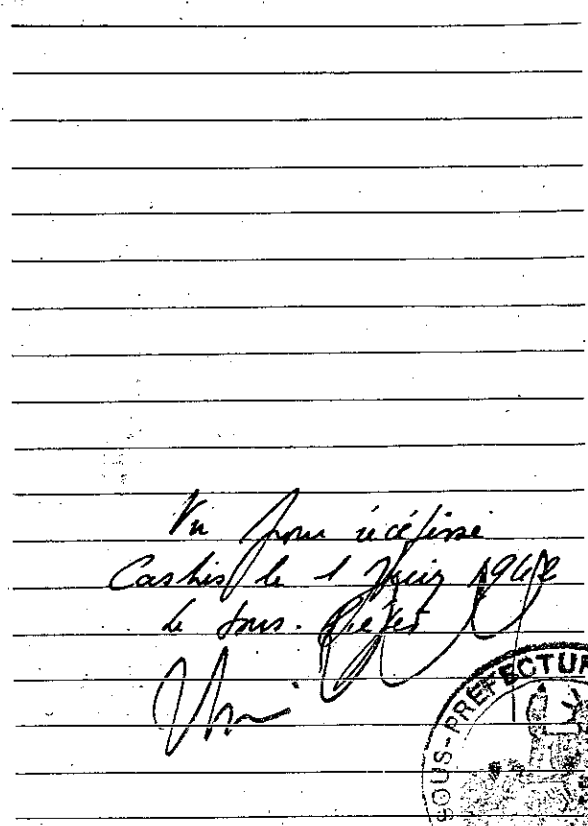 Vu pour récépissé
le 1 Juin
le Sous-Préfet
SOUS-PREFECTUR